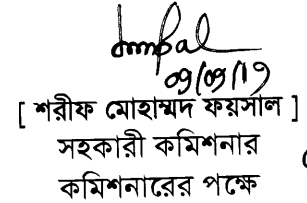 ০৭/০৭/১৭
[ শরীফ মোহাম্মদ ফয়সাল ]
সহকারী কমিশনার
কমিশনারের পক্ষে